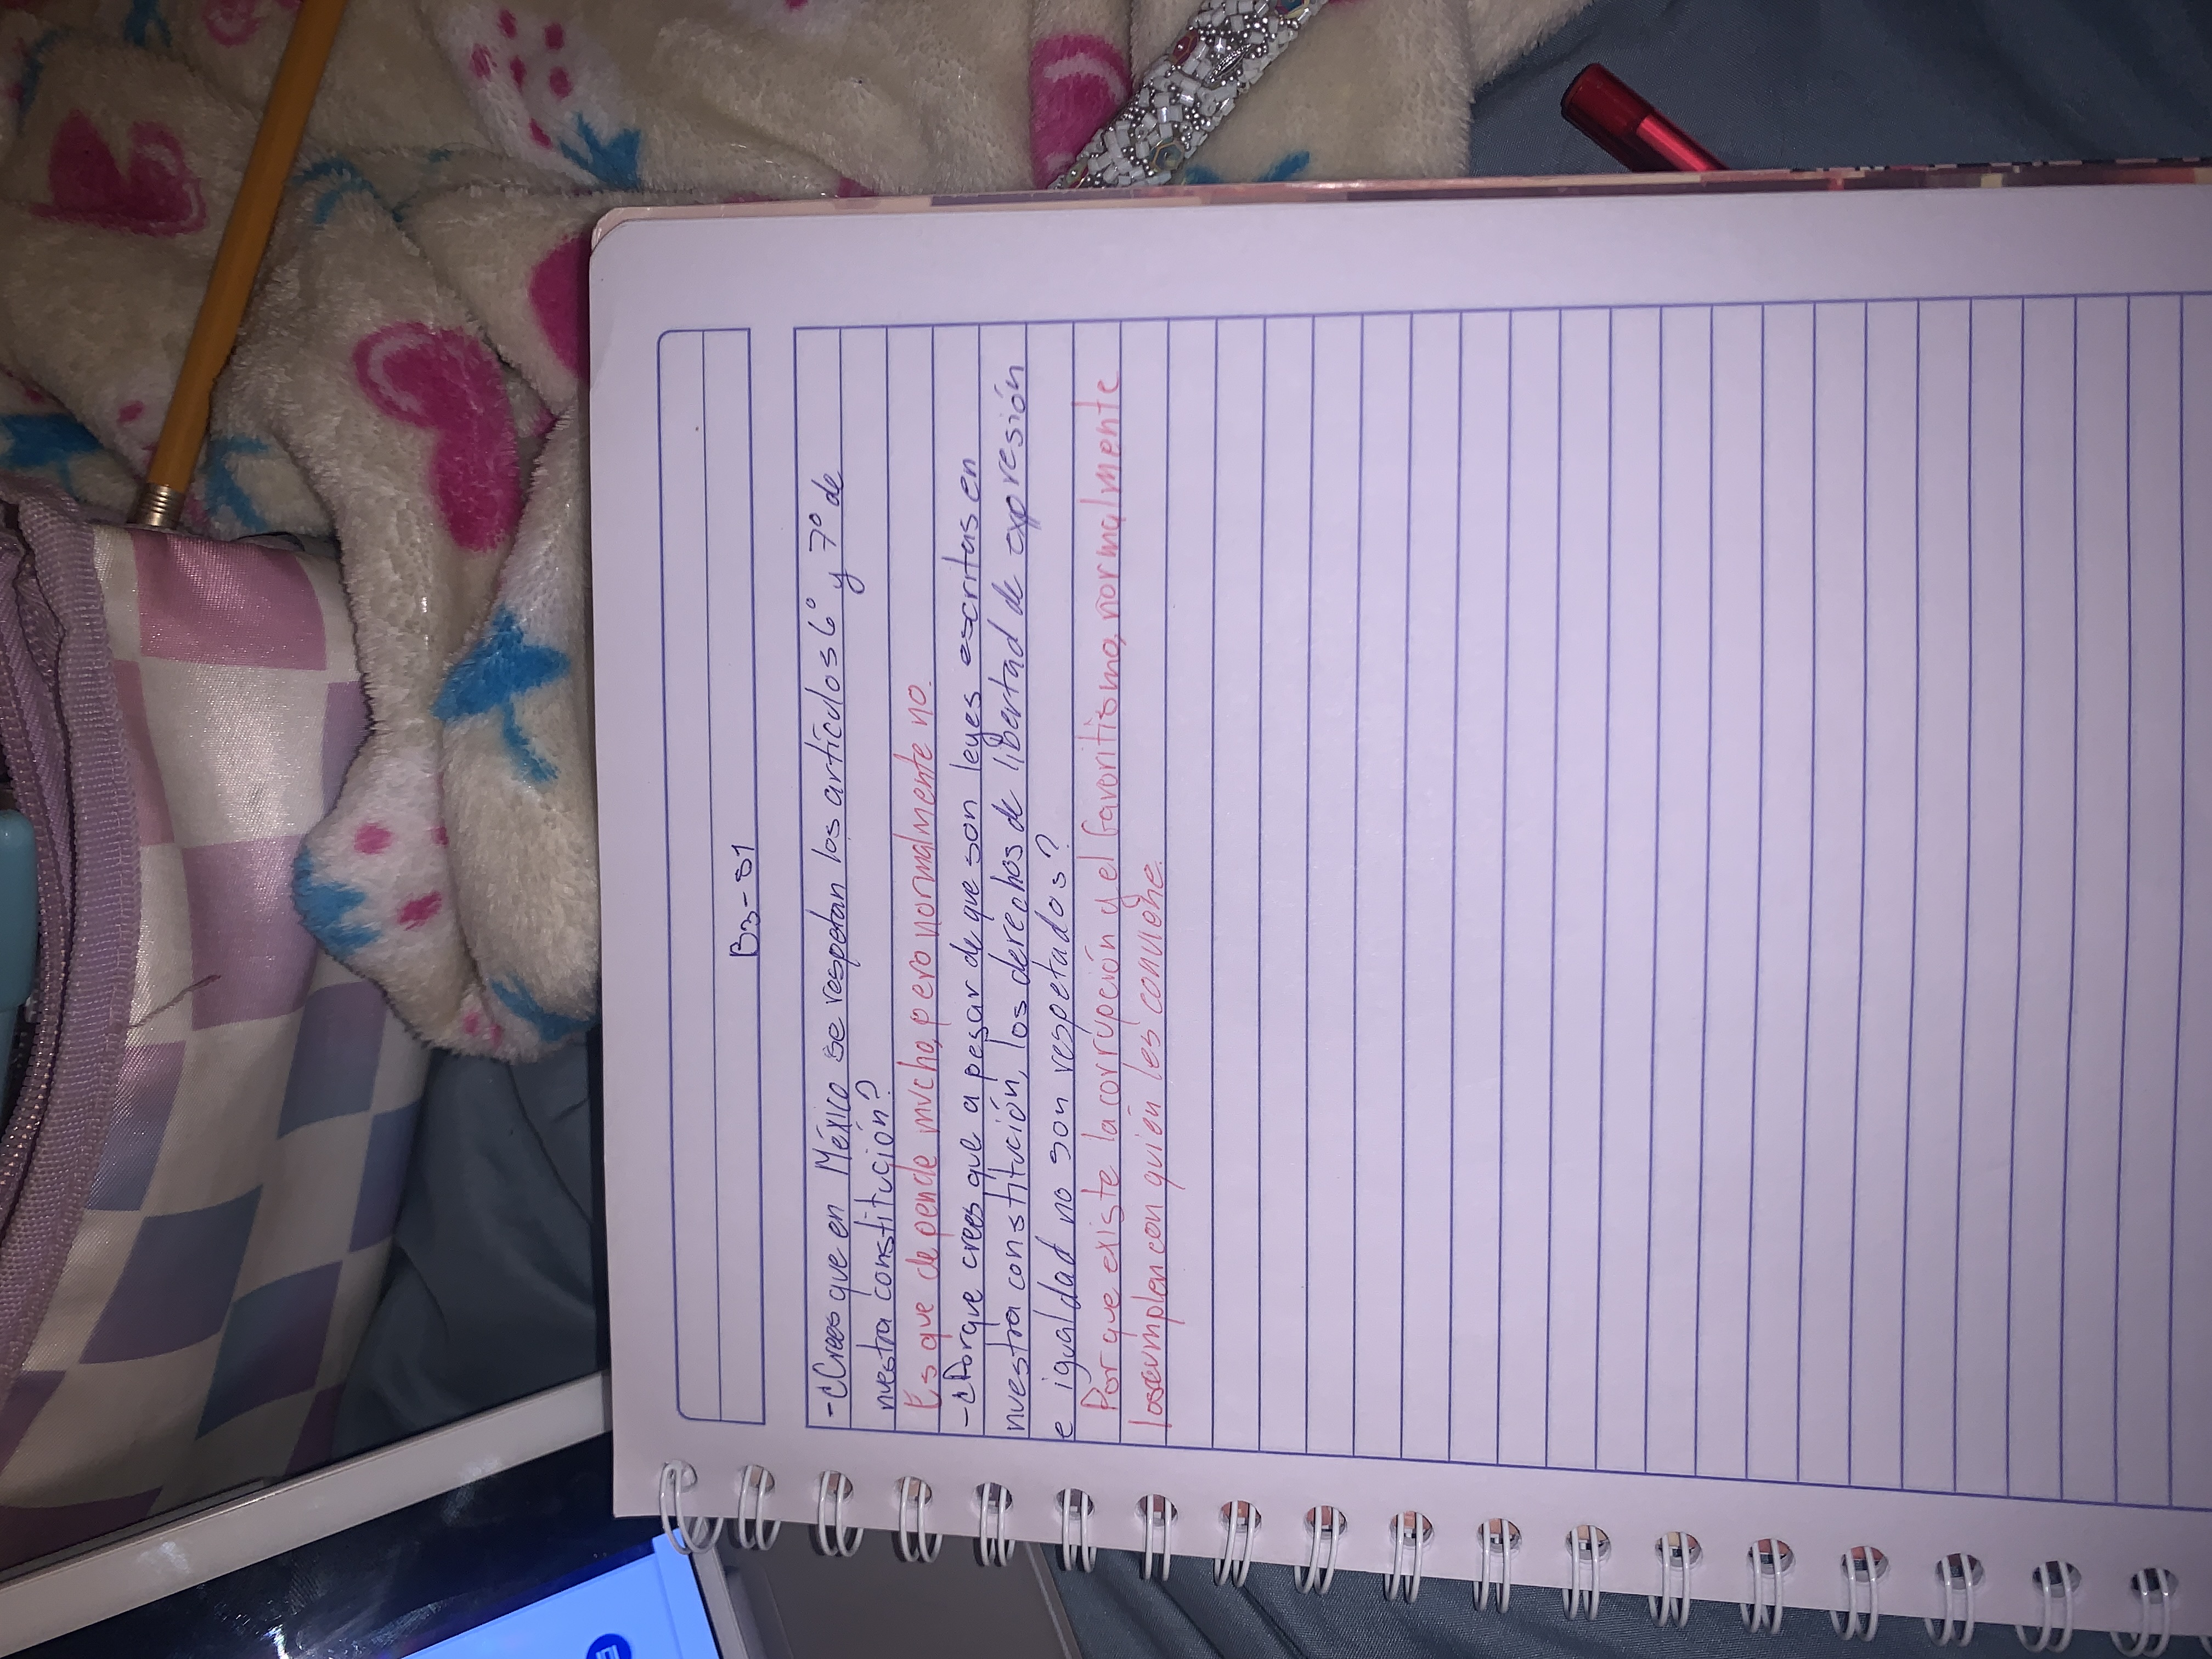 B3-S1
-¿Crees que en México se respetan los artículos 6° y 7° de
nuestra constitución?
Es que depende mucho, pero normalmente no.
-¿Porque crees que a pesar de que son leyes escritas en
nuestra constitución, los derechos de libertad de expresión
e igualdad no son respetados?
Por que existe la corrupción y el favoritismo, normalmente
los cumplen con quién les conviene.